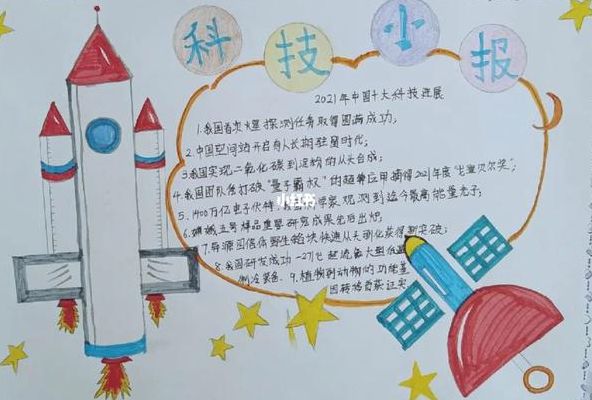 科技小报
2021年中国十大科技进展
1.我国首次火星探测任务取得圆满成功;
2.中国空间站开启有人长期驻留时代;
3.我国实现二氧化碳到淀粉的从头合成;
4.我国团队打破“量子霸权”的超算应用摘得2021年度“戈登贝尔奖”;
5.1400万亿电子伏特,观测到迄今最高能量光子;
6.嫦娥五号样品重要研究成果先后出炉;
7.异源四倍体野生稻快速从头驯化获得新突破;
8.我国研发成功-271℃超流氦大型低温
制冷装备. 9.植物到动物的功能基
因转移首获证实
小红书